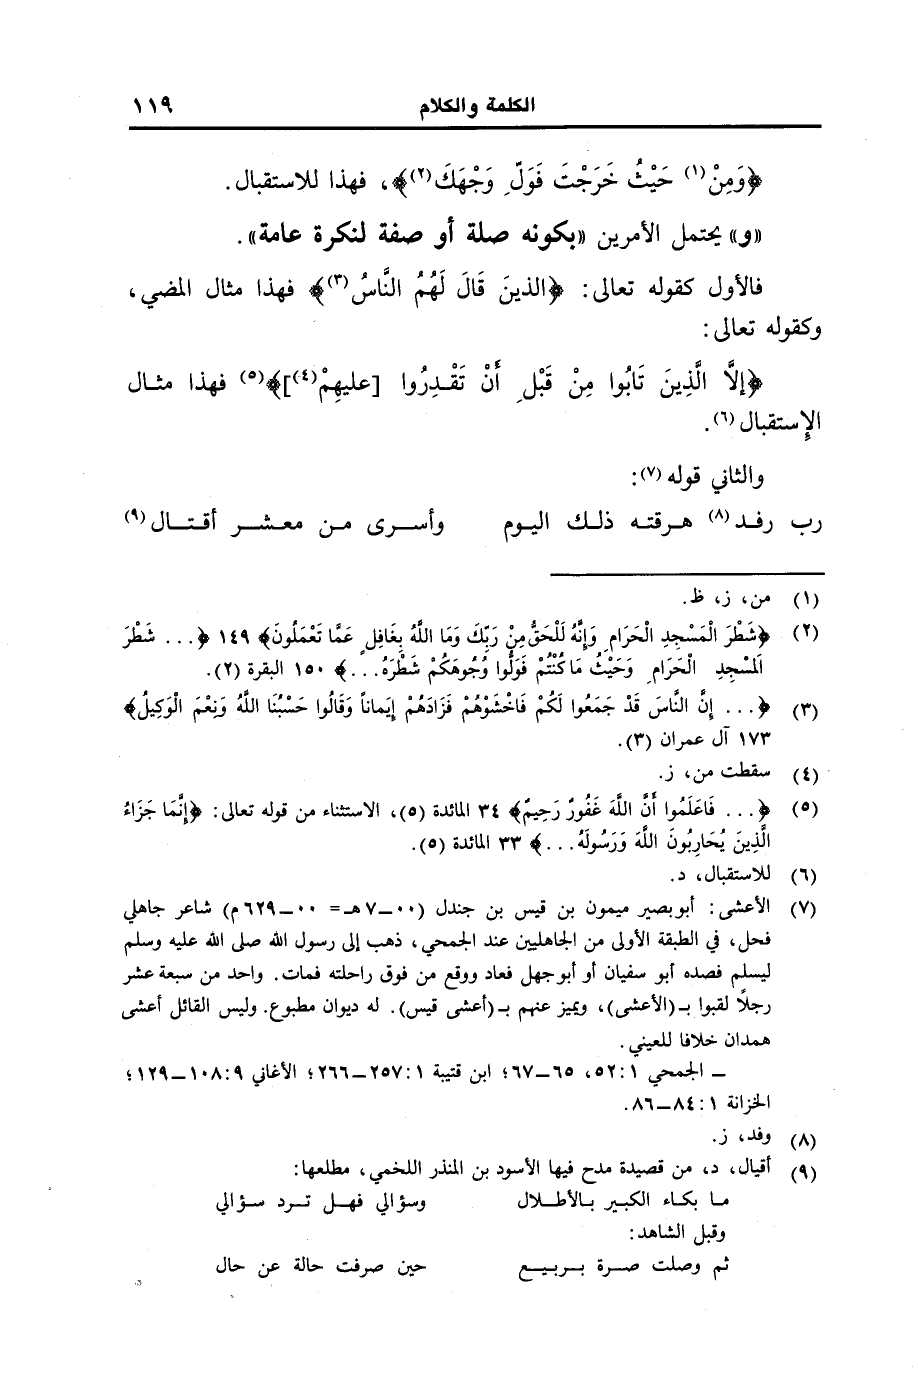 الكلمة والكلام ١١٩
﴿وَمِنْ(١) حَيْثُ خَرَجْتَ فَوَلِّ وَجْهَكَ(٢)﴾، فهذا للاستقبال.
«و» يحتمل الأمرين «بكونه صلة أو صفة لنكرة عامة».
فالأول كقوله تعالى: ﴿الذينَ قَالَ لَهُمُ النَّاسُ(٣)﴾ فهذا مثال المضي،
وكقوله تعالى:
﴿إلاَّ الَّذِينَ تَابُوا مِنْ قَبْلِ أَنْ تَقْدِرُوا [عليهِمْ(٤)]﴾(٥) فهذا مثال
الإستقبال(٦).
والثاني قوله(٧):
رب رفد(٨) هرقته ذلك اليوم وأسرى من معشر أقتال(٩)
(١) من، ز، ظ.
(٢) ﴿شَطْرَ الْمَسْجِدِ الْحَرَامِ وَإِنَّهُ لَلْحَقُّ مِنْ رَبِّكَ وَمَا اللَّهُ بِغَافِلٍ عَمَّا تَعْمَلُونَ﴾ ١٤٩ ﴿... شَطْرَ
الَمسْجِدِ الْحَرَامِ وَحَيْثُ مَا كُنْتُمْ فَوَلُّوا وُجُوهَكُمْ شَطْرَهُ...﴾ ١٥٠ البقرة (٢).
(٣) ﴿... إِنَّ النَّاسَ قَدْ جَمَعُوا لَكُمْ فَاخْشَوْهُمْ فَزَادَهُمْ إِيمَاناً وَقَالُوا حَسْبُنَا اللَّهُ وَنِعْمَ الْوَكِيلُ﴾
١٧٣ آل عمران (٣).
(٤) سقطت من، ز.
(٥) ﴿... فَاعْلَمُوا أَنَّ اللَّهَ غَفُورٌ رَحِيمٌ﴾ ٣٤ المائدة (٥)، الاستثناء من قوله تعالى: ﴿إِنَّمَا جَزَاءُ
الَّذِينَ يُحَارِبُونَ اللَّهَ وَرَسُولَهُ...﴾ ٣٣ المائدة (٥).
(٦) للاستقبال، د.
(٧) الأعشى: أبو بصير ميمون بن قيس بن جندل (٠٠ــ٧هـ= ٠٠ــ٦٢٩م) شاعر جاهلي
فحل، في الطبقة الأولى من الجاهليين عند الجمحي، ذهب إلى رسول الله صلى الله عليه وسلم
ليسلم فصده أبو سفيان أو أبو جهل فعاد ووقع من فوق راحلته فمات. واحد من سبعة عشر
رجلاً لقبوا بـ(الأعشى)، ويميز عنهم بـ(أعشى قيس). له ديوان مطبوع. وليس القائل أعشى
همدان خلافا للعيني.
ــ الجمحي ١:٥٢، ٦٥ــ٦٧؛ ابن قتيبة ١:٢٥٧ــ٢٦٦؛ الأغاني ٩:١٠٨ــ١٢٩؛
الخزانة ١:٨٤ــ٨٦.
(٨) وفد، ز.
(٩) أقيال، د، من قصيدة مدح فيها الأسود بن المنذر اللخمي، مطلعها:
ما بكاء الكبير بالأطلال وسؤالي فهل ترد سؤالي
وقبل الشاهد:
ثم وصلت صرة بربيع حين صرفت حالة عن حال